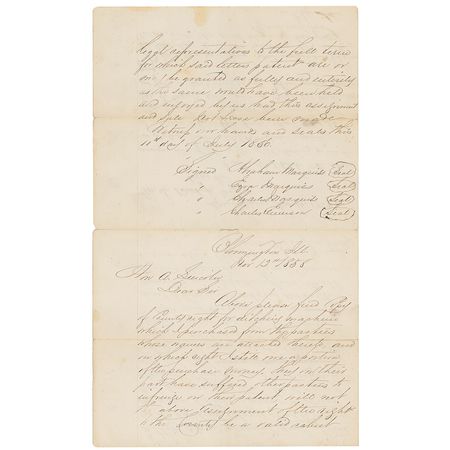 legal representatives to the full term
for which said letters patent are or
may be granted as fully and entirely
as the same would have been held
and enjoyed by us had this assignment
and sale not have been made
Witness our hands and seals this
10th day of July 1856
Signed Abraham Marquis (Seal)
" Ezra Marquis (Seal)
" Charles Marquis (Seal)
" Charles Emerson (Seal)
Bloomington Ills
Nov 12th 1858
Hon A. Lincoln
Dear Sir
Above please find Copy
of County right for ditching machine
which I purchased from the parties
whose names are attached thereto and
on which right I still owe a portion
of the purchase money. They on their
part have suffered other parties to
infringe on their patent will not
the above assignment of the right
to the County be a valid